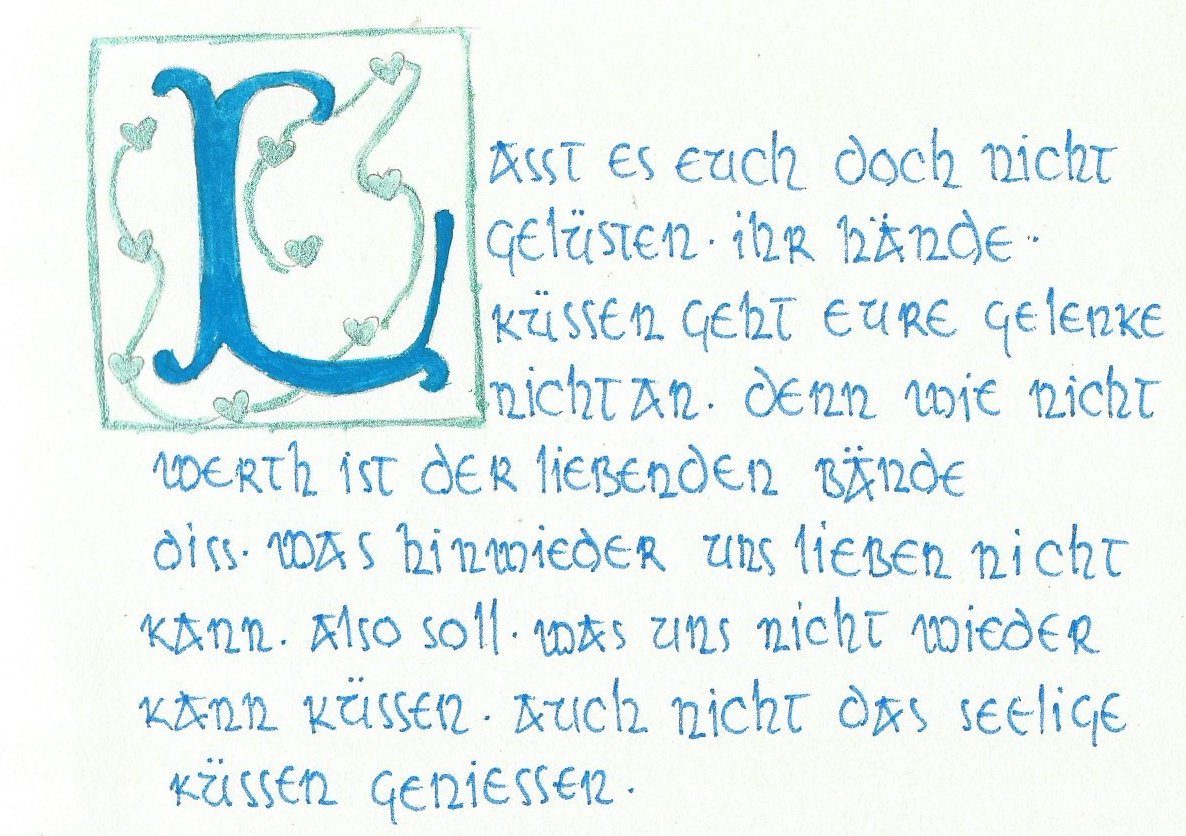 Lasst es euch doch nicht
gelüsten · ihr hände ··
küssen geht eure gelenke
nicht an. denn wie nicht
werth ist der liebenden bände
diss. was hinwieder uns lieben nicht
kann. also soll. was uns nicht wieder
kann küssen. auch nicht das seelige
küssen geniessen.